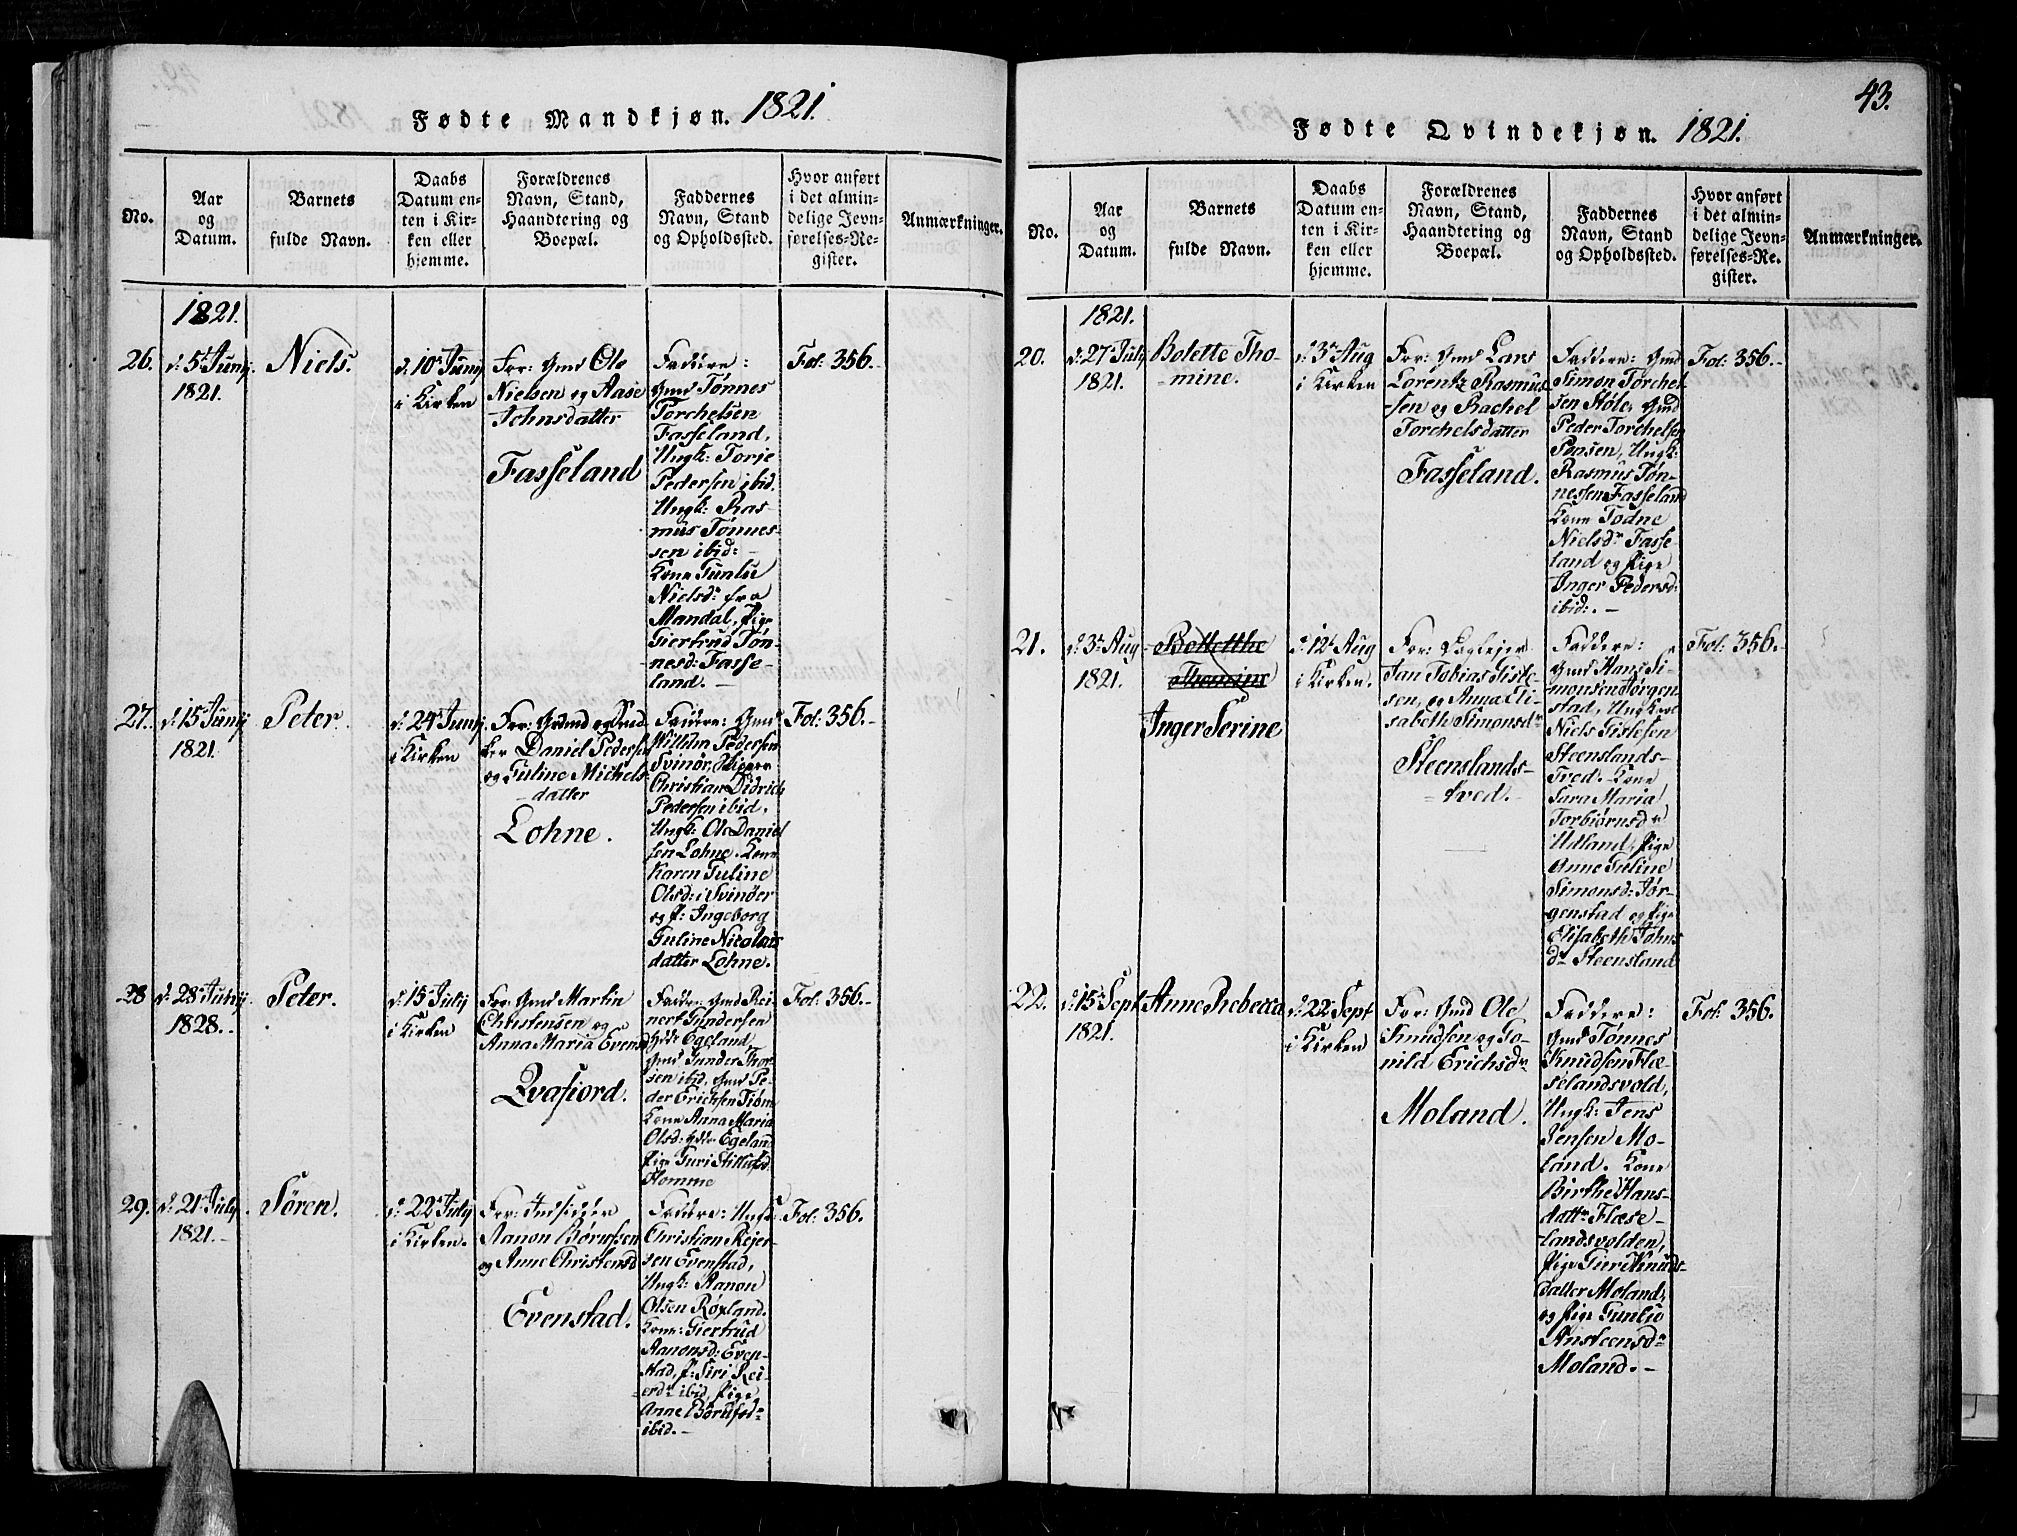 Fødte Mandkjøn. 1821.
No.
Aar
og
Datum.
Barnets
fulde Navn.
Daabs
Datum en-
ten i Kir-
ken eller
hjemme.
Forældrenes
Navn, Stand,
Haandtering og
Boepæl.
Faddernes
Navn, Stand
og Opholdssted.
Hvor anført
i det almin-
delige Jevn-
førelses-Re-
gister.
Anmærkninger.
1821.
26.
d. 5te Junij
1821.
Niels.
d. 10de Junij
i Kirken
For: Gmd Ole
Nielsen og Aase
Johnsdatter
Fasseland
Faddere:
Gmd Tønnes
Torchelsen
Fasseland,
Ungk: Torje
Pedersen ibid.
Ungk: Ras-
mus Tønnes-
sen ibid: -
Kone Gunlie
Nielsdr fra
Mandal, Pige
Giertrud Tøn-
nesd: Fasse-
land. -
Fol: 356.
27.
d. 15de Junij
1821.
Peter.
d. 24de Junij
i Kirken
For: Gmd og
Daniel Peders
og Guline Michels
datter
Lohne.
Faddere: Gmd
Wilhlm Pedersen
Svinør,
Christian Didrich
Pedersen ibid.
Ungk: Ole Daniel
sen Lohne. Kone
Karen Guline
Olsd: i Svinøer
og P: Ingeborg
Guline Nicolais
datter Lohne.
Fol: 356.
28
d. 28de Junij
1828.
Peter.
d. 15 Julij
i Kirken
For: Gmd Martin
Christensen og
Anna Maria Evensd
Qvafiord.
Faddere: Gmd Rei-
nert Gundersen
Ydre Egeland,
Gmd Gunder Thor
sen ibid, Gmd Pe-
der Erichsen Tiøm
Kone Anna Maria
Olsd: Ydre Egeland
Pige Guri
Homme
Fol: 356.
29.
d. 21de July
1821.
Søren.
d. 22de July
i Kirken.
For: Indsidder
Aanon Børufsen
og Anne Christensd
Evenstad.
Faddere:
Christian Reier-
sen Evenstad,
Ungk: Aanon
Olsen Røxland.
Kone: Giertrud
Aanonsd: Even-
stad, P: Siri Rei-
erdr ibid, Pige
Anne Børufsd
ibid. -
Fol: 356.
43.
Fødte Qvindekjøn. 1821.
No.
Aar
og
Datum.
Barnets
fulde Navn.
Daabs
Datum en-
ten i Kir-
ken eller
hjemme.
Forældrenes
Navn, Stand,
Haandtering og
Boepæl.
Faddernes
Navn, Stand
og Opholdssted.
Hvor anført
i det almin-
delige Jevn-
førelses-Re-
gister.
Anmærkninger.
1821.
20.
d. 27 July
1821.
Bolette Tho-
mine.
d. 3de Aug
i Kirken
For: Gmd Lars
Lorentz Rasmus-
sen og Rachel
Torchelsdatter
Fasseland.
Faddere: Gmd
Simon Torchel
sen Støle, Gmd
Peder Torchelsen
Ponsen, Ungk:
Rasmus Tøn-
nessen Fasseland
Kone Todne
Nielsdr Fasse-
land og Pige
Inger Pedersd:
ibid: -
Fol: 356.
21.
d. 3de Aug
1821.
Bolettthe
Thomine
Inger Serine
d. 12te Aug
i Kirken.
For:
Jan Tobias Gisle-
sen, og Anna Eli-
sabeth Simonsdr
Steenslands-
tved.
Faddere:
Gmd Hans Si-
monsen Jørgen-
stad, Ungkarl
Niels Gislesen
Steenslands-
Tved. Kone
Sara Maria
Torbiørnsdr
Udland, Pige
Anne Guline
Simonsd: Jør-
genstad og Pige
Elisabeth Johns
dr Steensland
Fol: 356.
22.
d. 15de Sept
1821.
Anne Rebecca
d. 22 Sept
i Kirken
For: Gmd Ole
Knudsen og Go-
nild Erichsdr
Moland.
Faddere:
Gmd Tønnes
Knudsen Flæ-
selandsvold,
Ungk: Jens
Jensen Mo-
land. Kone
Birthe Hans-
dattr Flæse-
landsvolden,
Pige Guri Knuds-
datter Moland,
og Pige Gunlio
Ansteensdr
Moland. -
Fol: 356.